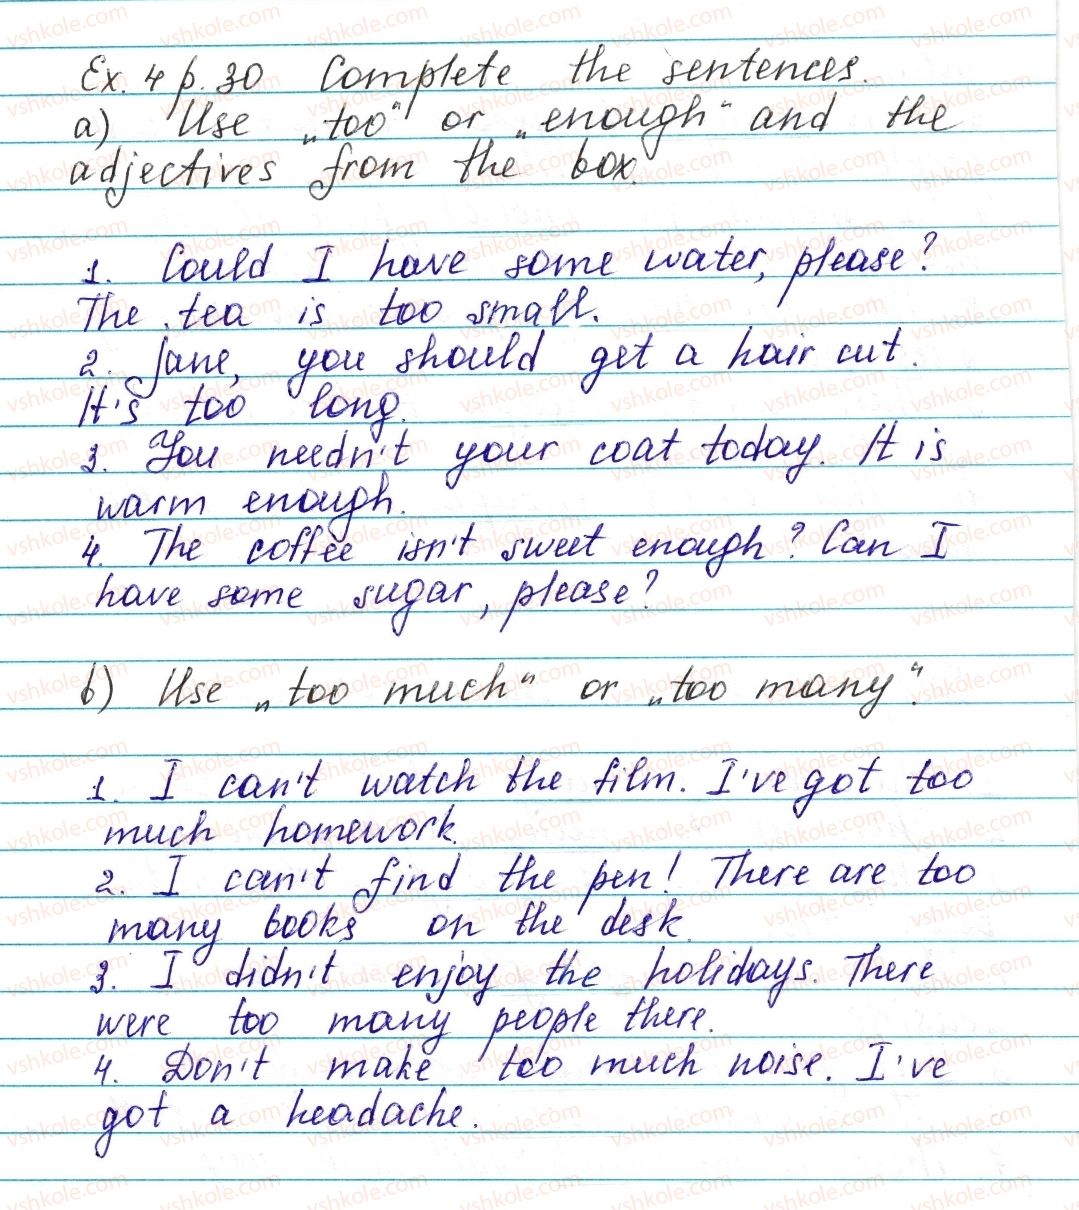 Ex. 4 p. 30 Complete the sentences.
a) Use „too“ or „enough“ and the
adjectives from the box.
1. Could I have some water, please?
The tea is too small.
2. Jane, you should get a hair cut.
It's too long.
3. You needn't your coat today. It is
warm enough.
4. The coffee isn't sweet enough? Can I
have some sugar, please?
b) Use „too much“ or „too many“.
1. I can't watch the film. I've got too
much homework.
2. I can't find the pen! There are too
many books on the desk.
3. I didn't enjoy the holidays. There
were too many people there.
4. Don't make too much noise. I've
got a headache.
vshkole.com